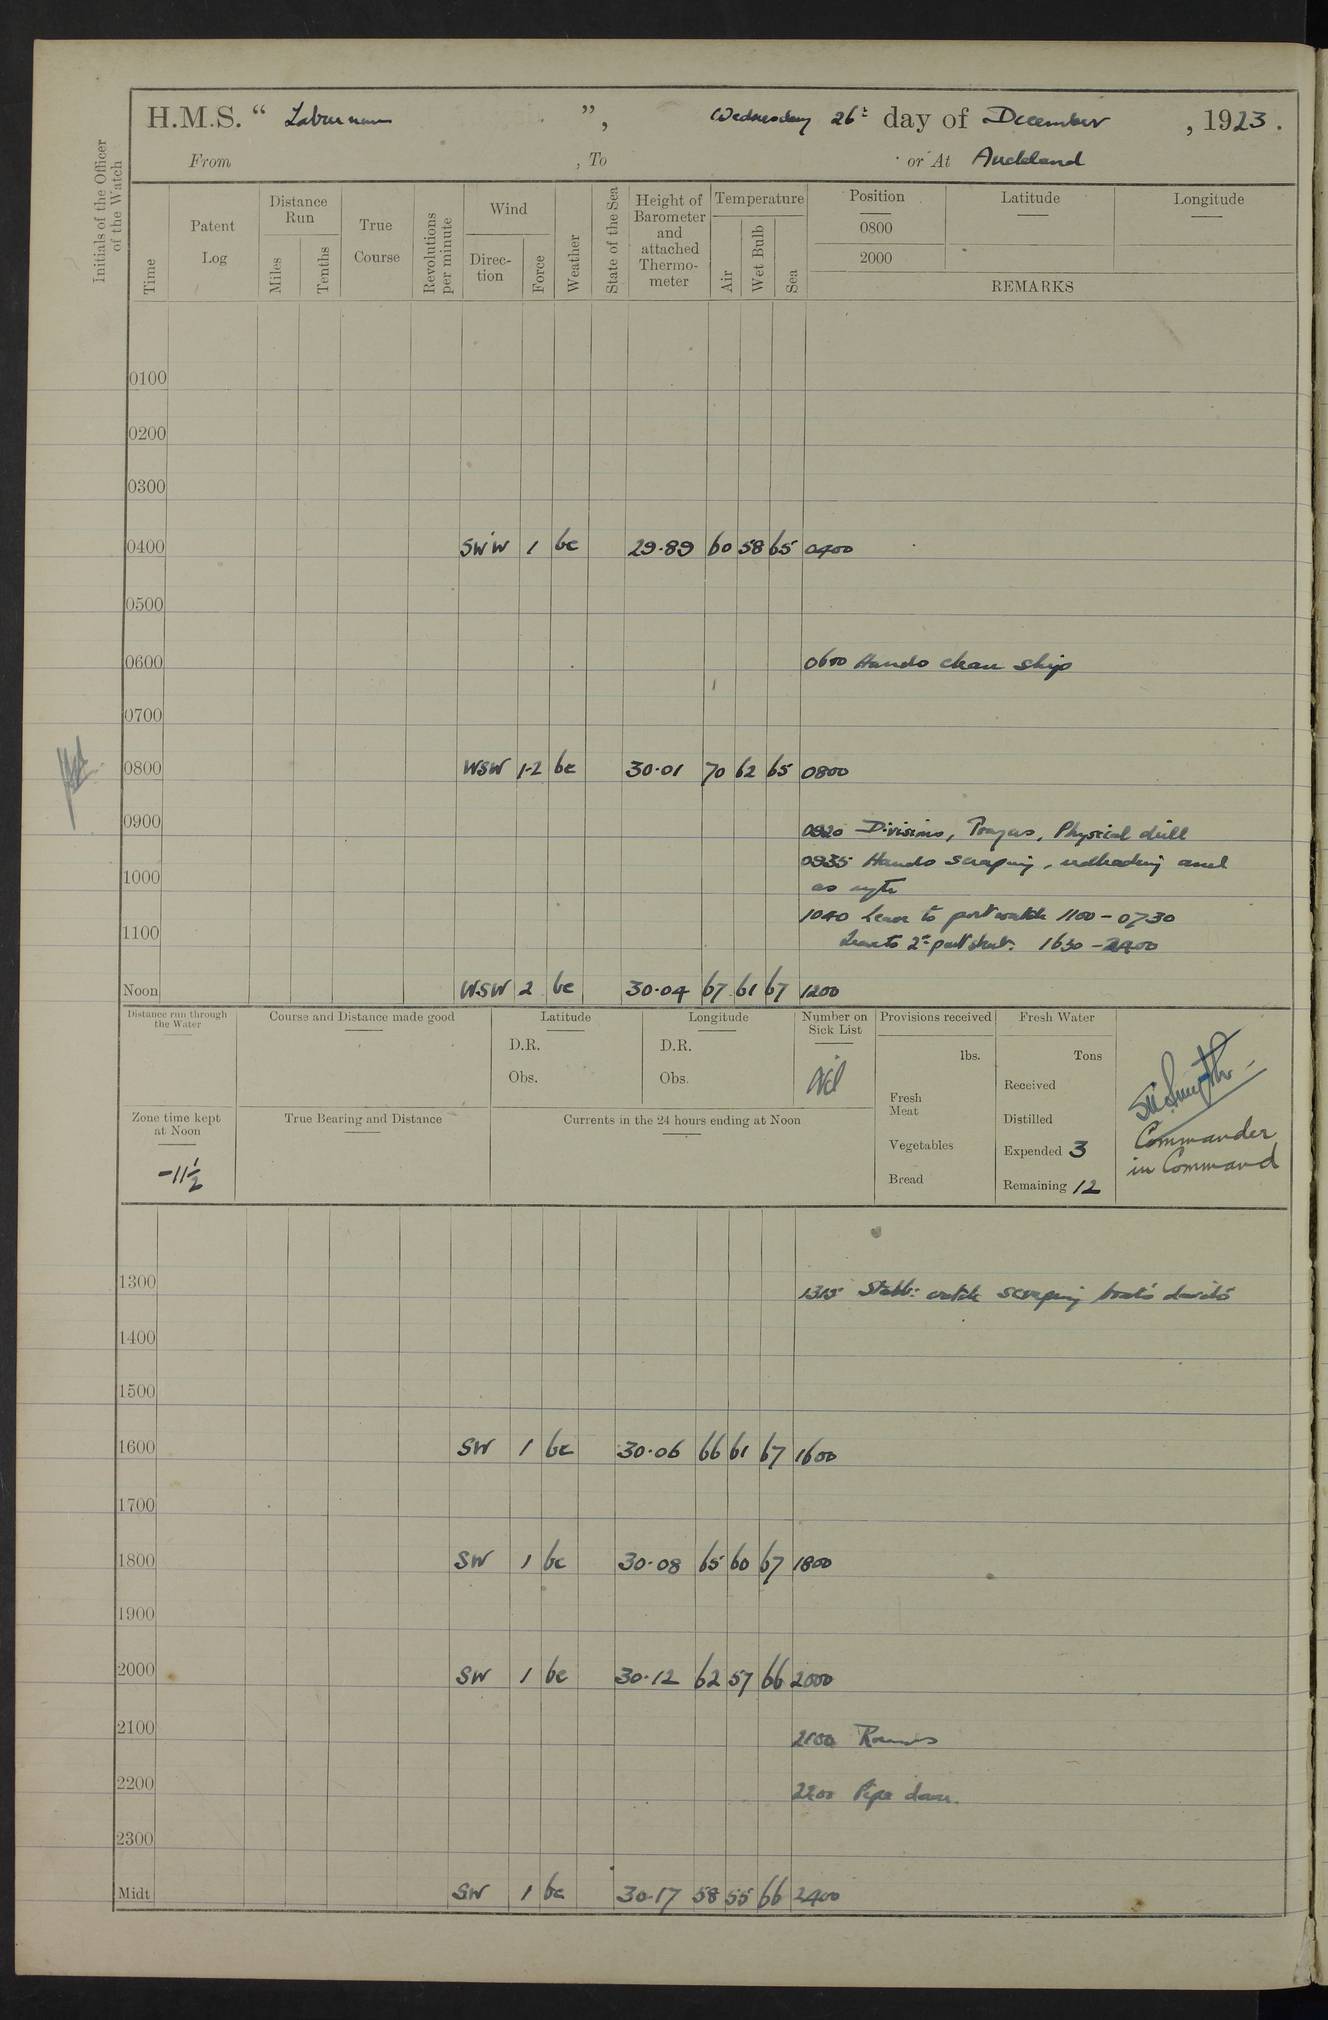 H.M.S. “ Laburnum ”, Wednesday 26th day of December , 1923.
From , To or At Auckland
Initials of the Officer of the Watch
Time
Patent Log
Distance Run
Miles
Tenths
True Course
Revolutions per minute
Wind
Direc-tion
Force
Weather
State of the Sea
Height of Barometer and attached Thermo-meter
Temperature
Air
Wet Bulb
Sea
Position
0800
2000
Latitude
Longitude
REMARKS
0100
0200
0300
0400 SW'W 1 bc 29.89 60 58 65 0400
0500
0600 0600 Hands clean ship
0700
0800 WSW 1-2 bc 30.01 70 62 65 0800
0900 0920 Divisions, Prayers, Physical drill
0935 Hands scraping, redleading and
1000 as
1040 Leave to port watch 1100 - 0730
1100 Leave to 2nd part 1630 - 2400
Noon WSW 2 bc 30.04 67 61 67 1200
Distance run through the Water
Course and Distance made good
Latitude
D.R.
Obs.
Longitude
D.R.
Obs.
Number on Sick List
Nil
Provisions received
lbs.
Fresh Meat
Vegetables
Bread
Fresh Water
Tons
Received
Distilled
Expended 3
Remaining 12
Commander
in Command
Zone time kept at Noon
-11½
True Bearing and Distance
Currents in the 24 hours ending at Noon
1300 1315 watch scraping boats davits
1400
1500
1600 SW 1 bc 30.06 66 61 67 1600
1700
1800 SW 1 bc 30.08 65 60 67 1800
1900
2000 SW 1 bc 30.12 62 57 66 2000
2100 2100 Rounds
2200 2200 Pipe down.
2300
Midt SW 1 bc 30.17 58 55 66 2400